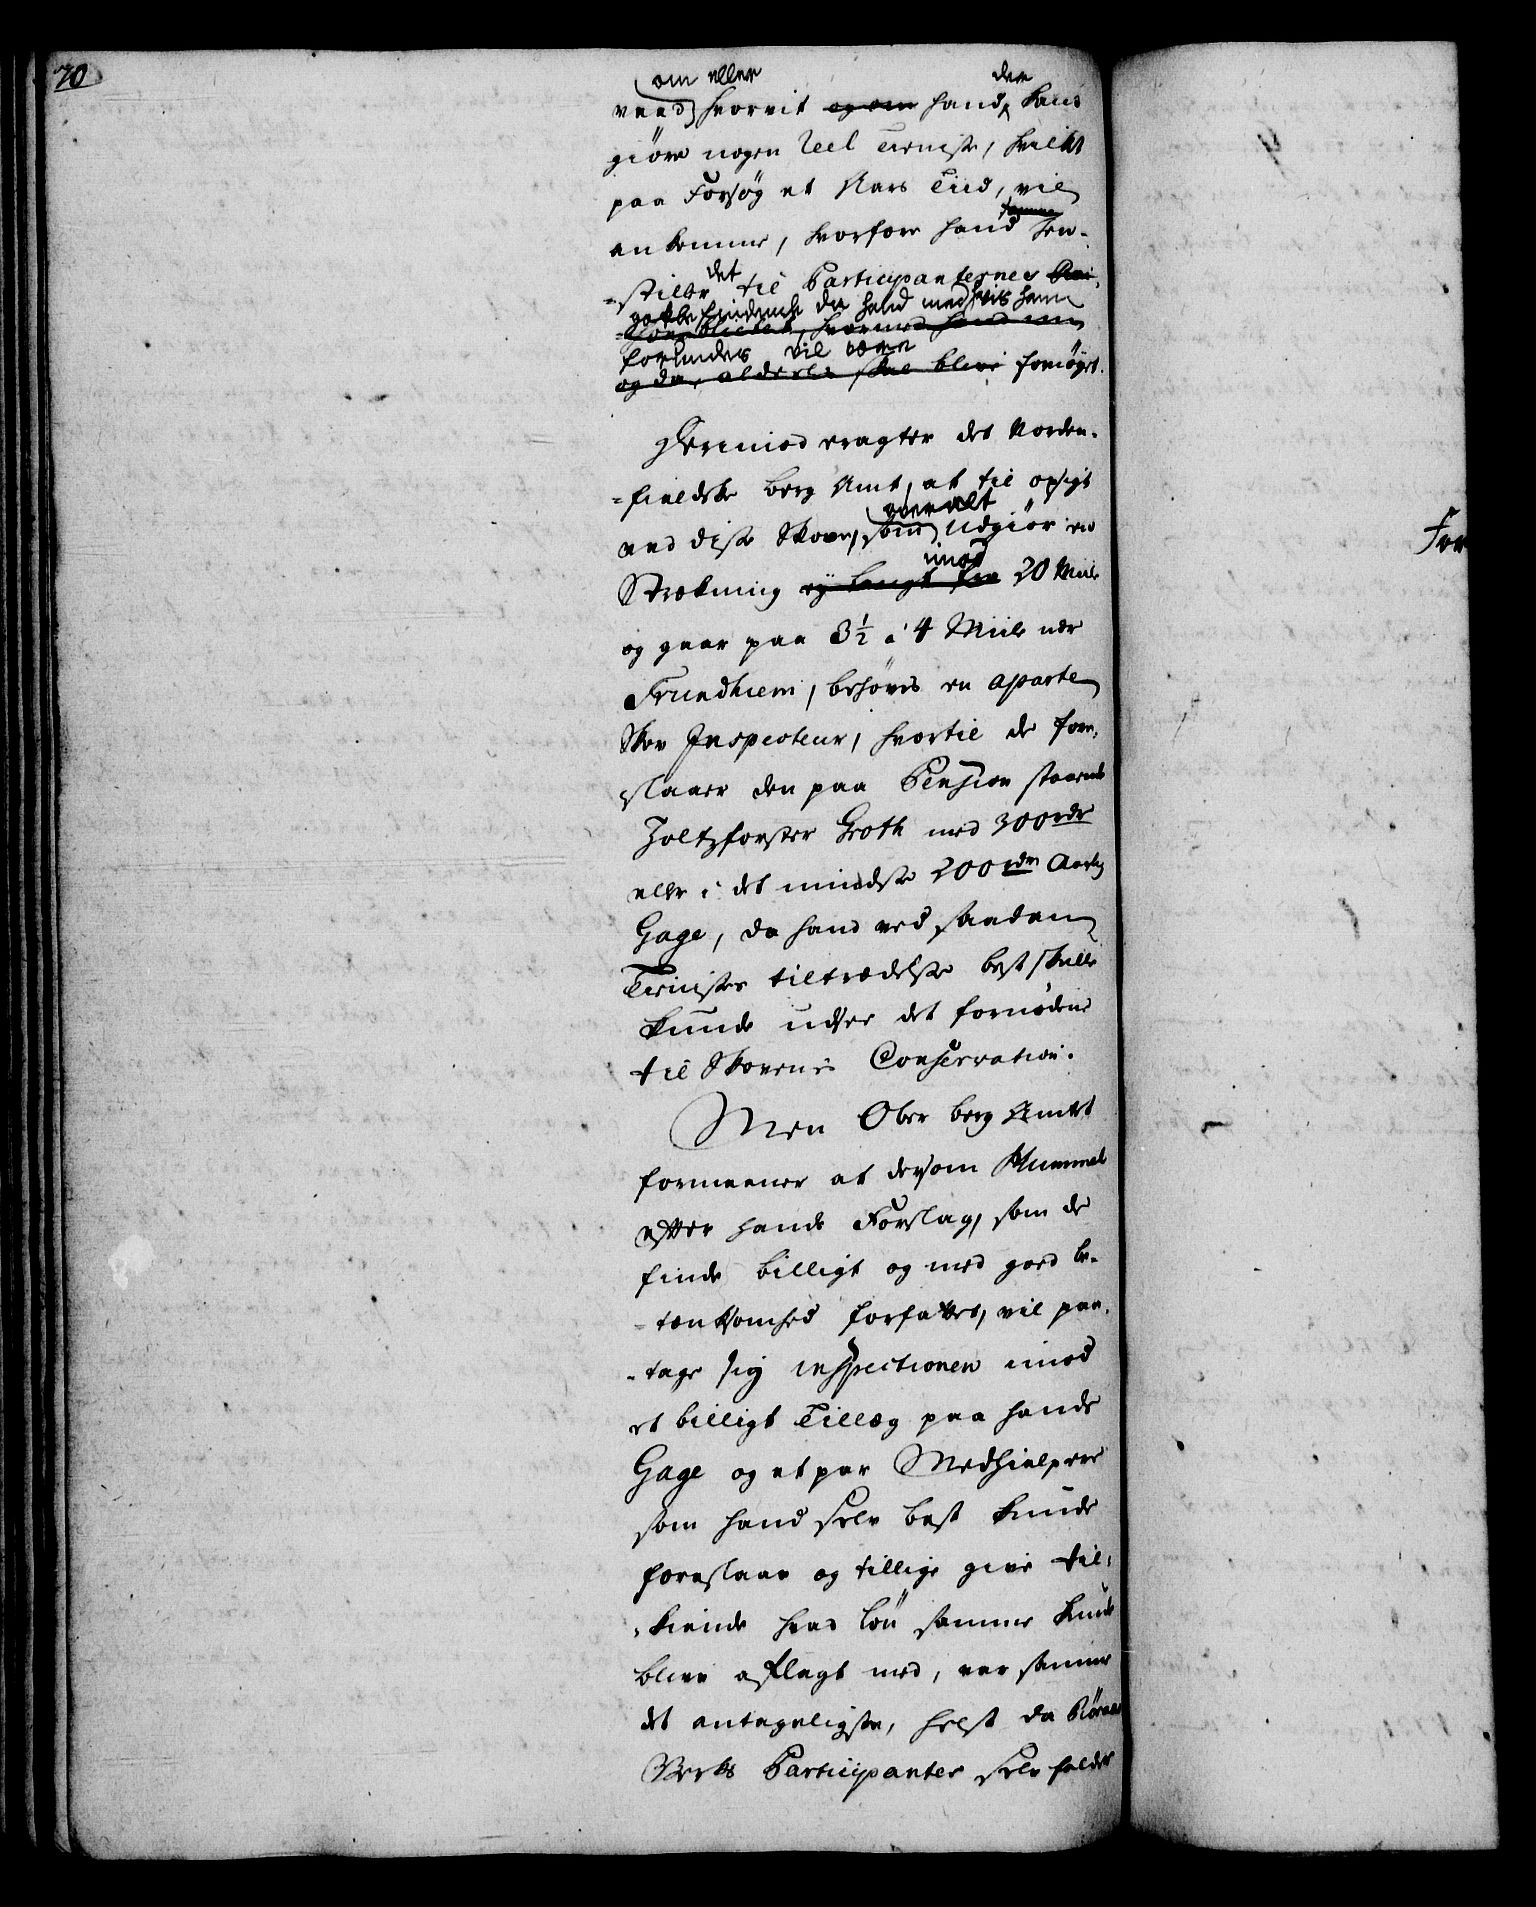 70
om eller der
vaad hvorvit og om hand kand
giöre nogen Reel Tieniste, hvilket
paa Forsøg et Aars Tiid, vil
ankomme, hvorfore hand samme hen-
=stiller det til Participanternes
godtbefindende da hand med hvis ham
forundes vil være
og der aldeeles skal blive fornøyet.
Herimod eragter det Norden-
=fieldske Berg Amt, at til opsigt
ved disse Skove, som overalt udgiör en
Strækning ey langt fra imod 20 Miile
og gaar paa 3½ a 4 Miile nær
Trundhiem, behøves en aparte
Skov Inspecteur, hvortil de fore-
slaaer den paa Pension staaende
Holtzforster Groth med 300 rdr
eller i det mindste 200 rdr Aarlig
Gage, da hand ved saadan
Tienistes tiltrædelse best skulle
kunde udsee det fornødne
til Skovenes Conservation.
Men Ober Berg Amtet
formeener at dersom Hummel
efter hands Forslag, som de
finde billigt og med goed be-
-tænksomhed forfattet, vil paa-
-tage sig inspectionen imod
et billigt Tillæg paa hands
Gage og et par Medhielpere
som hand selv best kunde
foreslaae og tillige give til-
-kiende hvad lön samme kunde
blive aflagt med, var samme
det antageligste, helst da Röraas
Verks Participanter selv holder